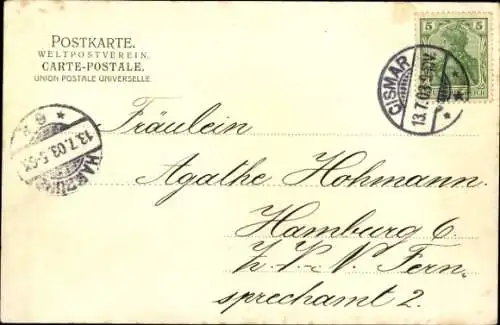 POSTKARTE.
WELTPOSTVEREIN.
CARTE-POSTALE.
UNION POSTALE UNIVERSELLE
5 5
CISMAR
13.7.03
HAMBURG
13.7.03. 5-6N
Fräulein
Agathe Hohmann
Hamburg 6.
z. V. N. Fern-
sprechamt 2.